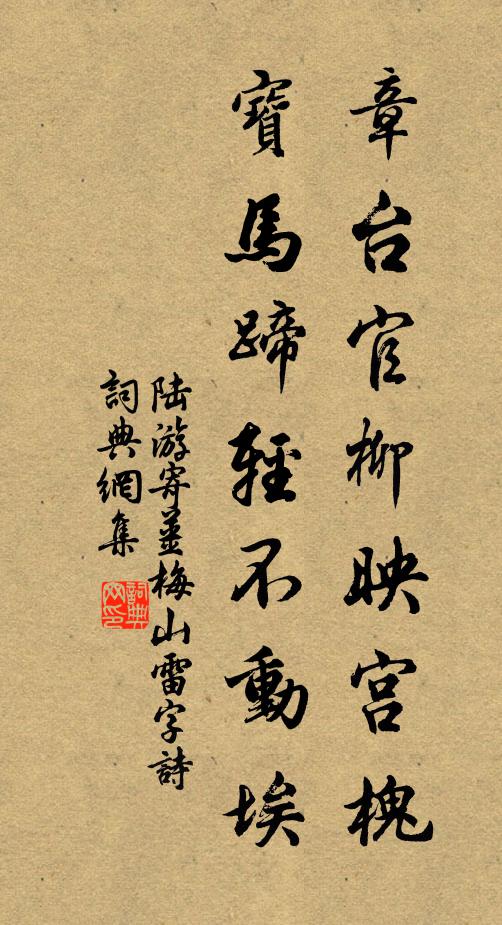 章台官柳映宮槐
寶馬蹄輕不動埃
陸游寄姜梅山雷字詩
詞典網集
詞典網印